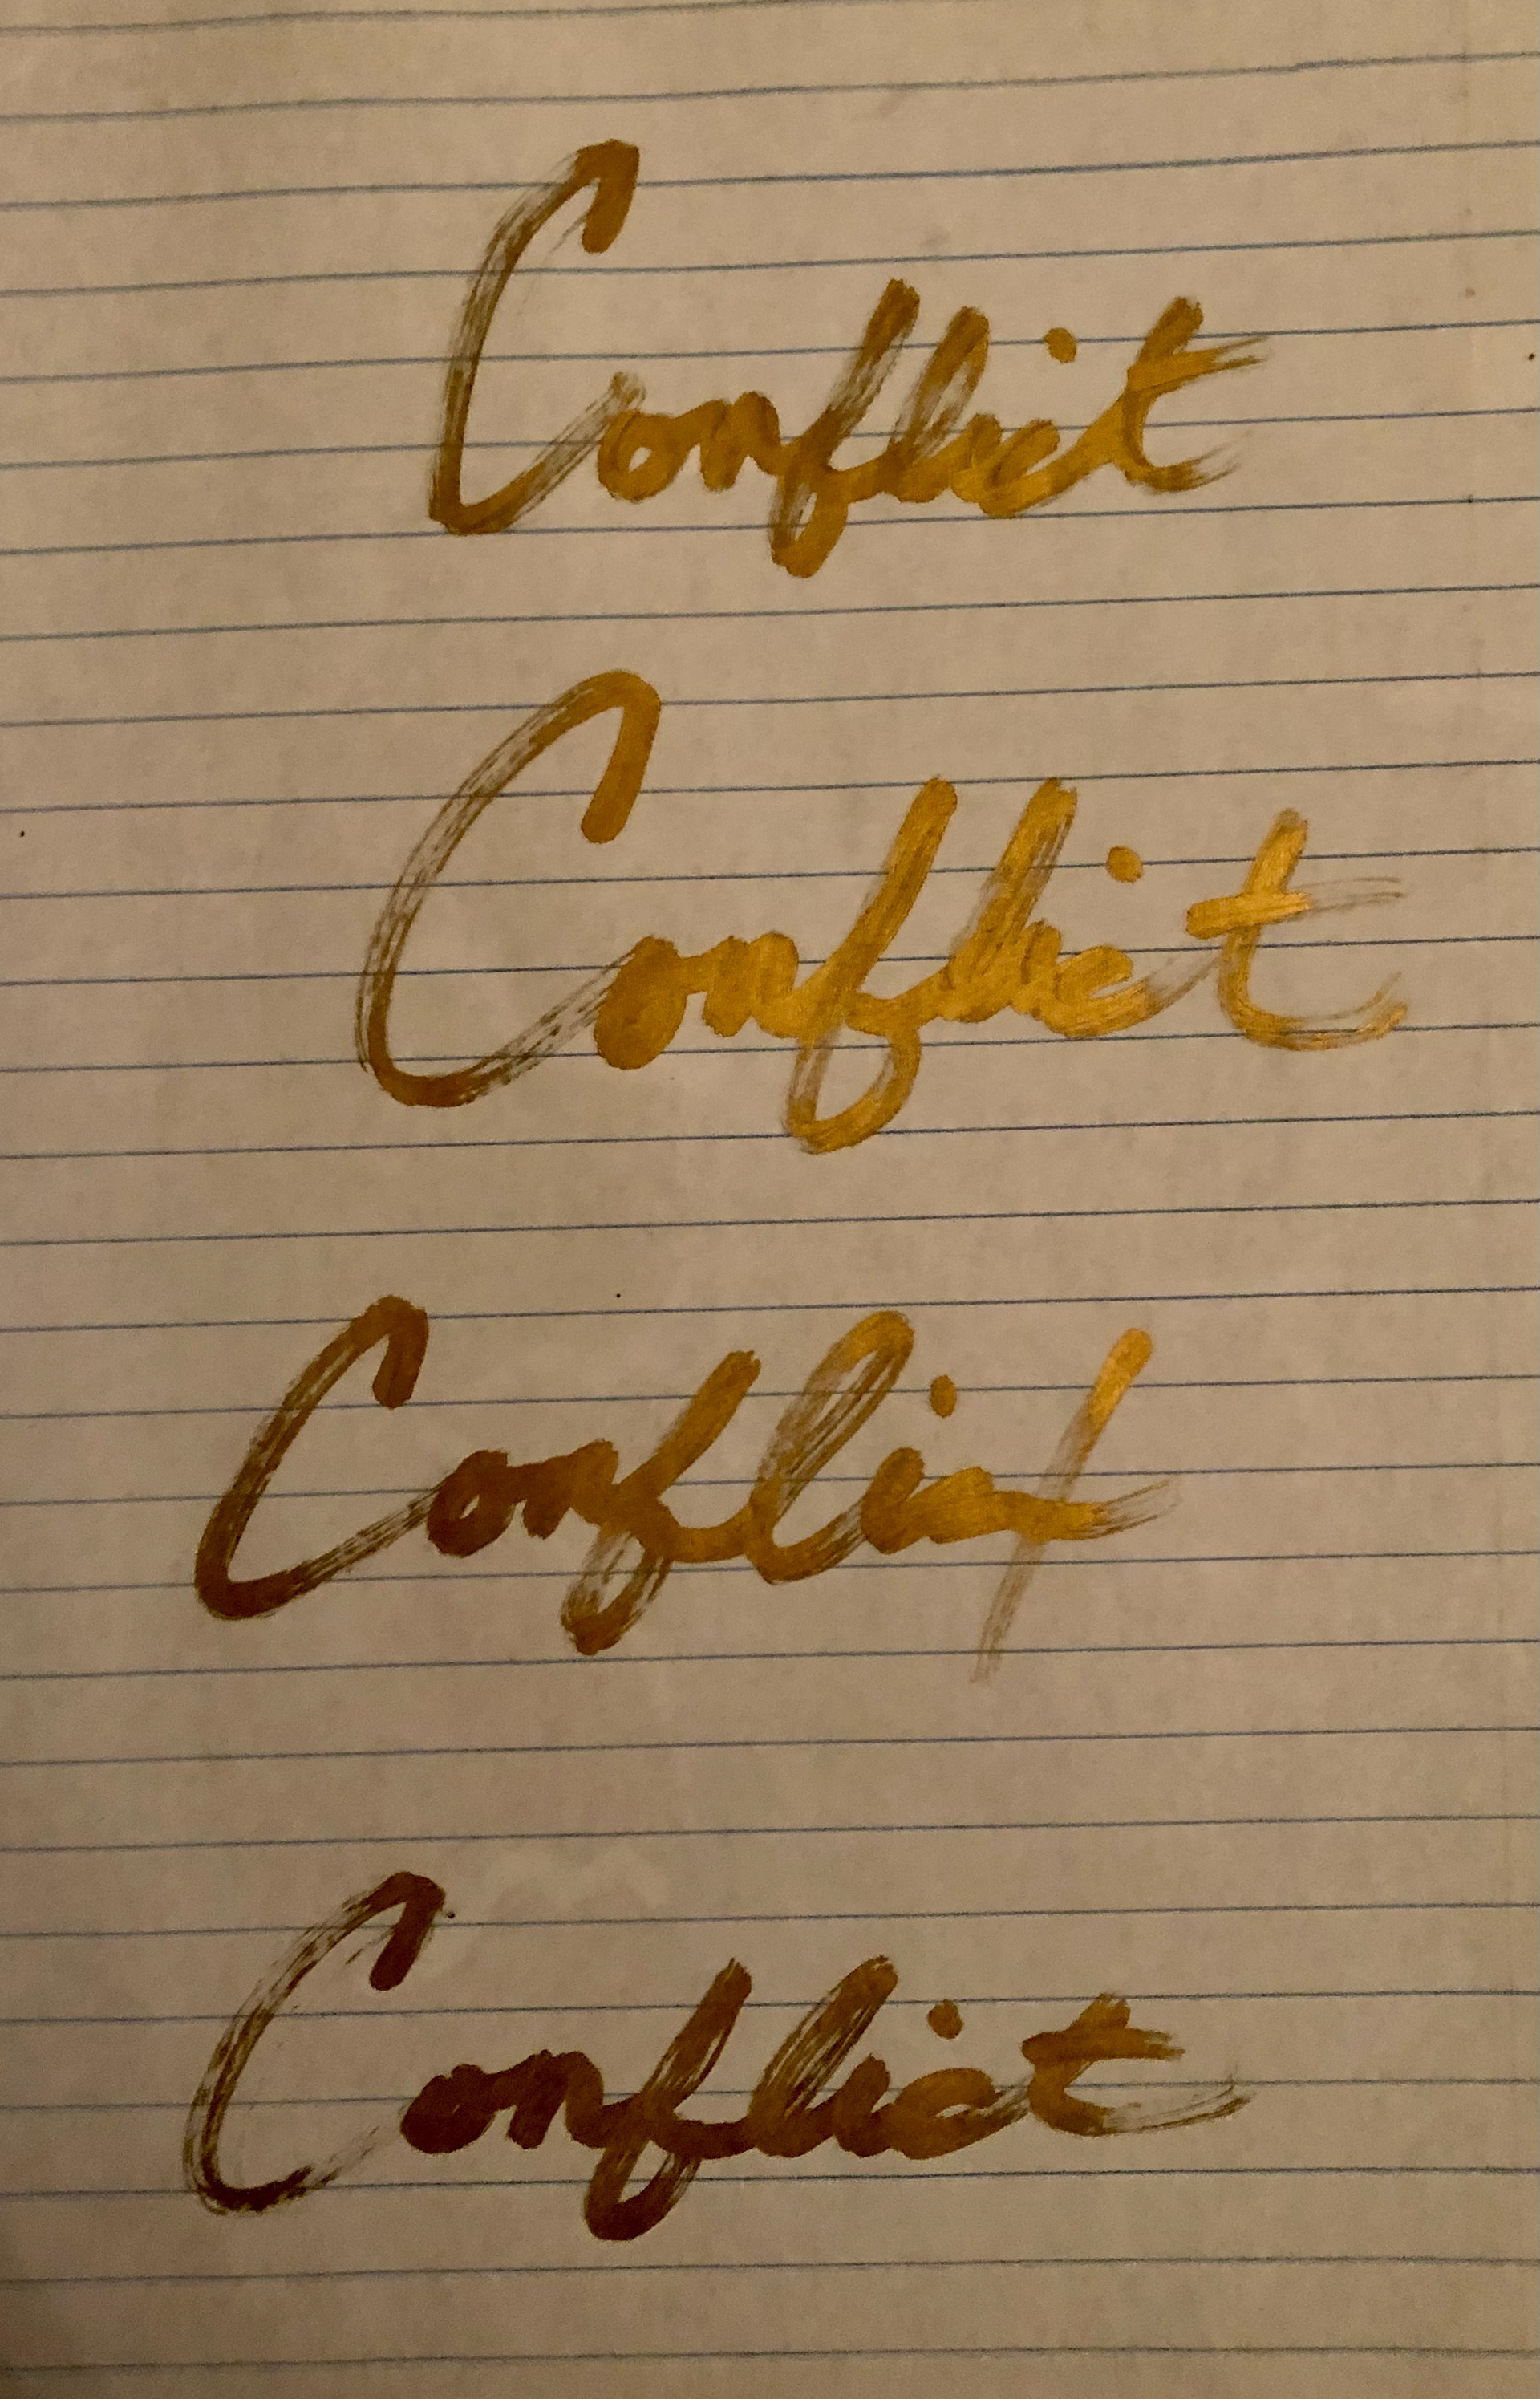 Conflict
Conflict
Conflict
Conflict